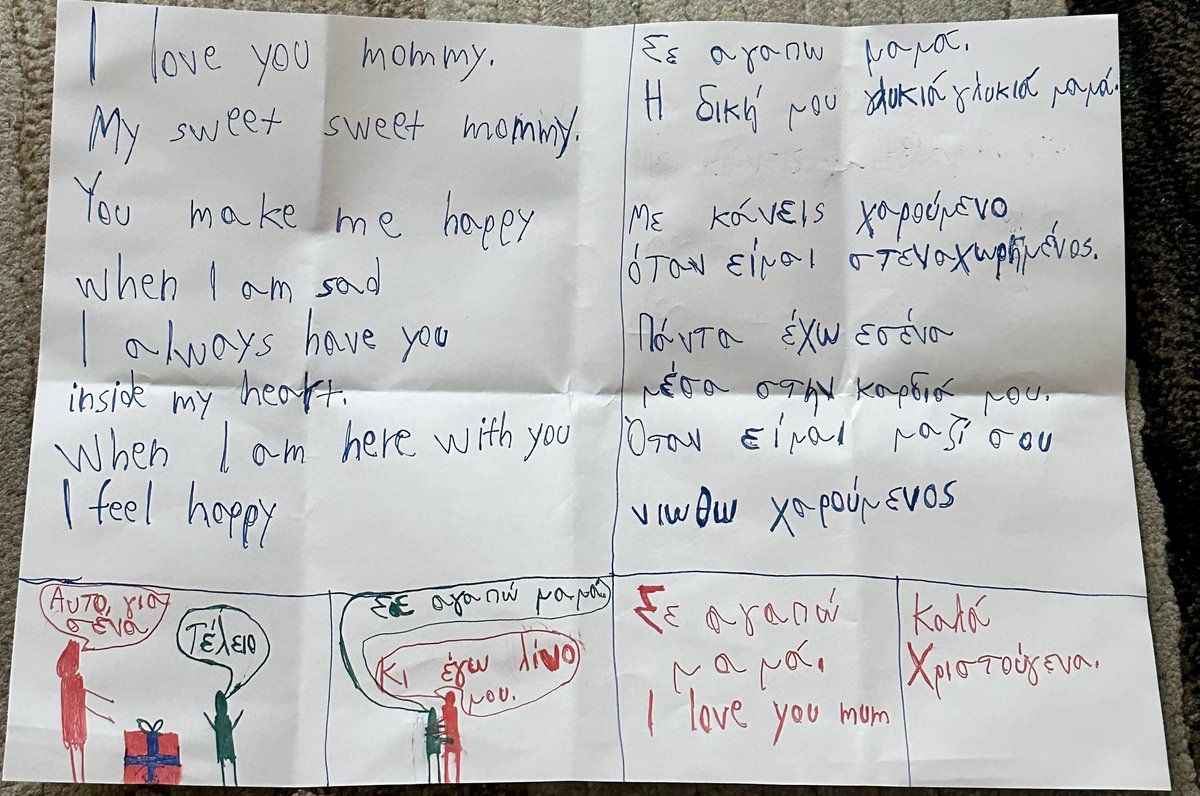 I love you mommy.
My sweet sweet mommy.
You make me happy
when I am sad
I always have you
inside my heart.
When I am here with you
I feel happy
Σε αγαπω μαμά.
Η δική μου γλυκιά γλυκιά μαμά.
Με κάνεις χαρούμενο
όταν είμαι στεναχωρημένος.
Πάντα έχω εσένα
μέσα στην καρδιά μου.
Όταν είμαι μαζί σου
νιωθω χαρούμενος
Αυτο, για
σένα
Τέλειο
Σε αγαπώ μαμά.
Κι έγω λίνο
μου.
Σε αγαπώ
μαμά.
I love you mum
Καλά
Χριστούγενα.